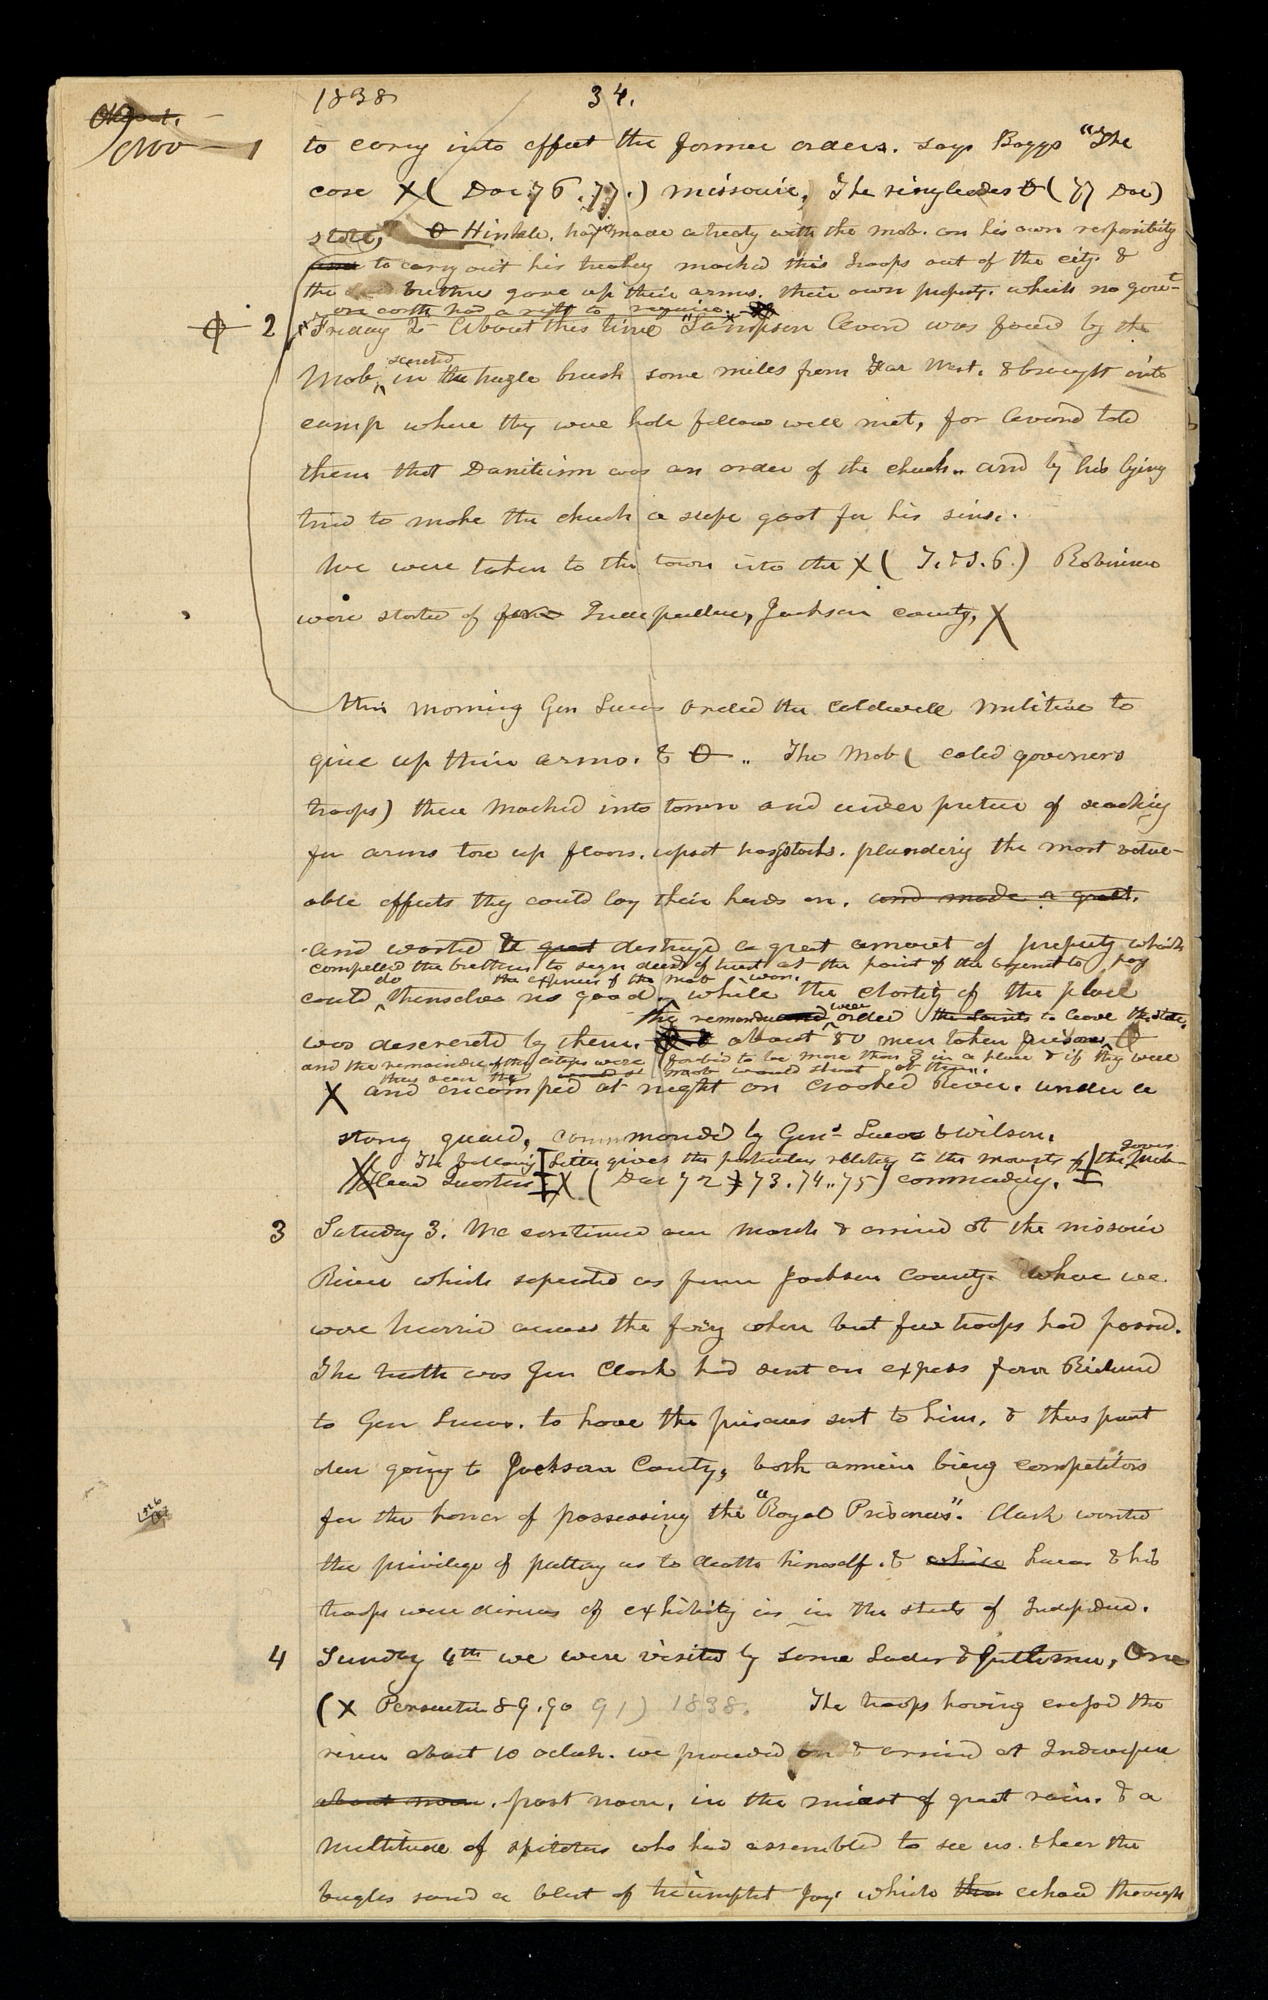 1838 34.
August.
Nov— 1
to carry into effect the former orders. says Boggs "The
case X ( Doc 76.77.) missouri, The ringleaders O ( 77 Doc)
state, O Hinkle. havig made a treaty with the mob. on his own responsibility
and to carry out his treatey marched this troops out of the city. &
the brethrn gave up their arms. their own property. which no govert-
on earth had a right to require.
2 Friday 2— About this time "Sampson Avard was found by the
Mob, secreted in the hazle brush some miles from Far West. & brought into
camp where they were hale fellows well met, for Avard told
them that Daniteism was an order of the church.. and by his lying
tried to make the church a scape goat for his sins..
We were taken to the town into the X ( T. & S. 6.) Robinson
were started of for Independnce, Jackson county, X
this morning Gen Lucas orderd the Caldwell militia to
give up their arms. & O .. The Mob ( caled governers
troops) then Marched into town and under pretnce of seachig
for arms tore up floors. upset haystacks. plunderig the most valu-
able effects they could lay their hands on. and made a great.
and wasted & great destroyd a great amount of property which
compelled the brethren to sign deeds of trust at the point of the bayonet to pay
the expences of the mob
could do themselves no good. while the chastity of the place
the remainder and were orderd the saints to leave the state.
was desecrated by them. about 80 men taken prisoners,
and the remainder of the citizens were forbid to be more than 3 in a place & if they were
they seen the mob would shoot at them..
X and encamped at night on Crooked River. under a
strong guard, commanded by Genˢ Lucas & Wilson.
The following Letter gives the particulars relatig to the movemts of the Govers Mob
Head Quarters X ( Doc 72 73. 74.. 75) commading.
3 Satuday 3. We continued our march & arrived at the missouri
River which seperated us from Jackson County. Where we
were hurried across the ferry when but few troops had passed.
The truth was Gen Clark had sent an express from Richmond
to Gen Lucas. to have the prisoners sent to him. & thus pevent
our going to Jackson County, both armies bieng competitors
for the honor of possessing the "Royal Prisoners". Clark wanted
the privilege of putting us to death himself. & while Lucas & his
troops were desirous of exhibitig us in the streets of Independnce.
4 Sunday 4th we were visited by some Ladies & gentlemen, One
( X Persecution 89. 90 91) 1838. The troops having crossed the
river about 10 oclock. we proceeded on & arrived at Indepence
about noon. past noon, in the midst of great rain. & a
multitude of spectators who had assembled to see us. & hear the
bugles sound a blast of triumphant joy. which tho echoed through